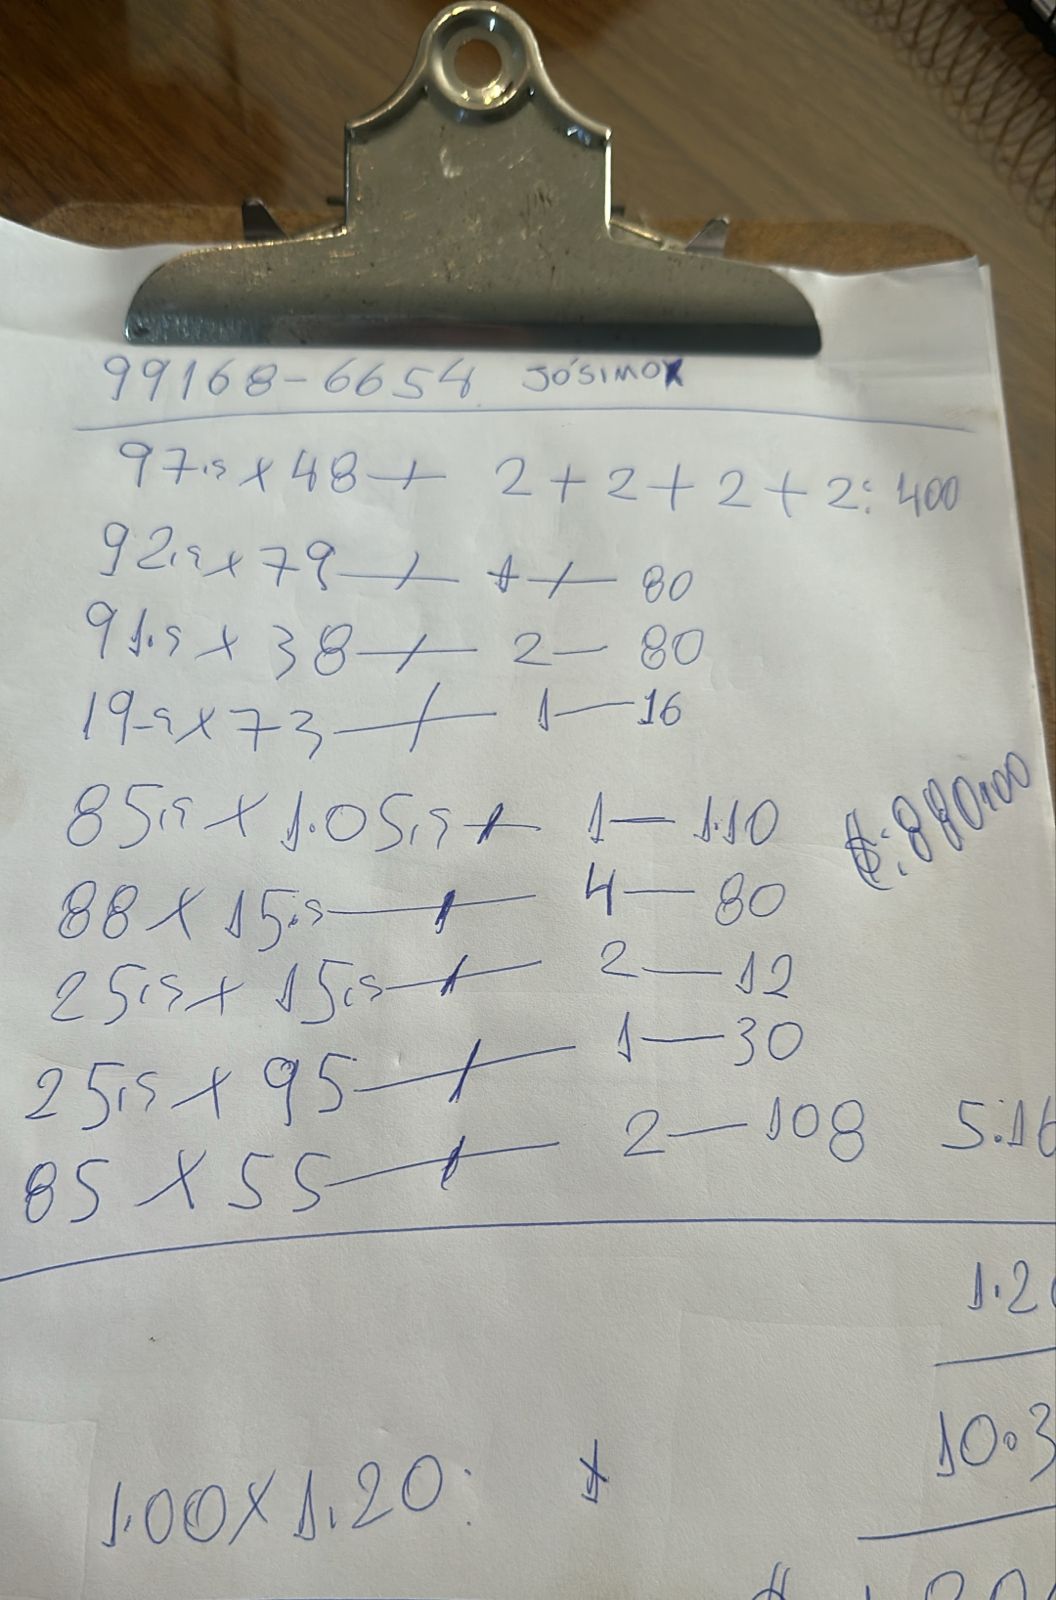 99168-6654 JÓSIMO
97,5 x 48 — 2+2+2+2: 400
92,5 x 79 — 1 — 80
91,5 x 38 — 2 — 80
19,5 x 73 — 1 — 16
85,5 x 1.05,5 — 1 — 1.10
$: 880,00
88 x 15,5 — 4 — 80
25,5 x 15,5 — 2 — 12
25,5 x 95 — 1 — 30
85 x 55 — 2 — 108 5.16
1.2
10.3
1.00 x 1.20: 1